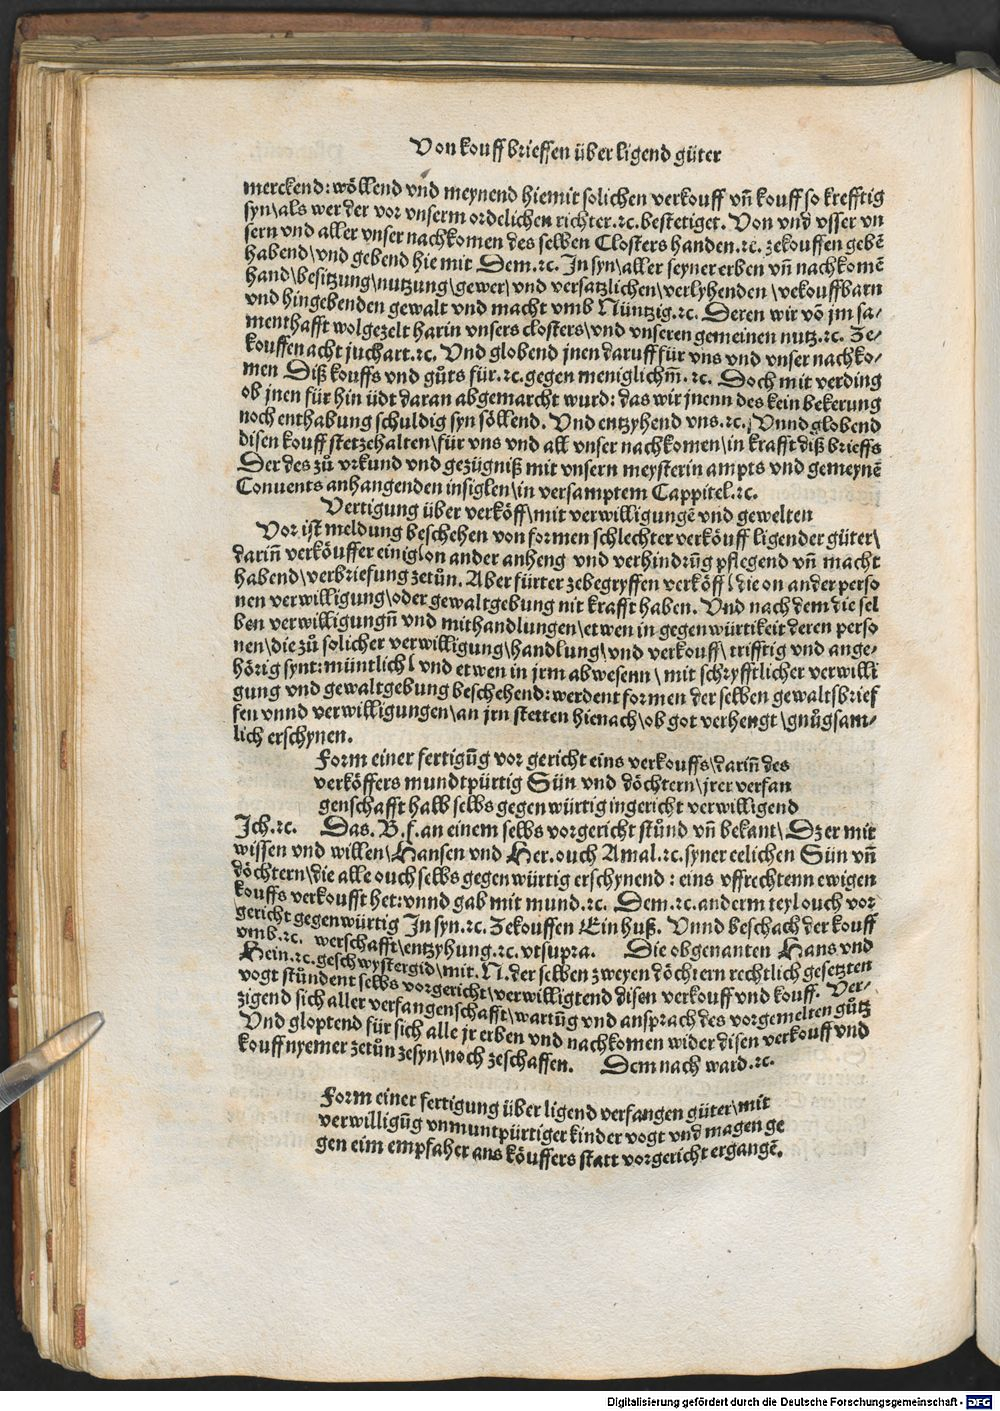 Von kouff brieffen über ligend güter
merckend: wöllend vnd meynend hiemit solichen verkouff vn̄ kouff so krefftig
syn\als wer der vor vnserm ordelichen richter.⁊c. bestetiget. Von vnd vsser vn
sern vnd aller vnser nachkomen des selben Closters handen.⁊c. zekouffen gebē
habend\vnd gebend hie mit Dem.⁊c. In syn\aller seyner erben vn̄ nachkomē
hand\besitzung\nutzung\gewer\vnd versatzlichen\verlyhenden\vekouffbarn
vnd hingebenden gewalt vnd macht vmb Nüntzig.⁊c. Deren wir vō jm sa⸗
menthafft wolgezelt harin vnsers closters\vnd vnseren gemeinen nutz.⁊c. Ze⸗
kouffen acht juchart.⁊c. Vnd globend jnen daruff für vns vnd vnser nachko⸗
men Diß kouffs vnd gůts für.⁊c. gegen meniglichm̄.⁊c. Doch mit verding
ob jnen für hin üdt daran abgemarcht wurd: das wir jnenn des kein bekerung
noch enthabung schuldig syn söllend. Vnd entzyhend vns.⁊c. Vnnd globend
disen kouff stetzehalten\für vns vnd all vnser nachkomen\in krafft diß brieffs
Der des zů vrkund vnd gezügniß mit vnsern meysterin ampts vnd gemeynē
Conuents anhangenden insiglen\in versamptem Cappitel.⁊c.
Vertigung über verköff\mit verwilligungē vnd gewelten
Vor ist meldung beschehen von formen schlechter verköuff ligender güter\
darin̄ verköuffer einig\on ander anheng vnd verhindrūg pflegend vn̄ macht
habend\verbriefung zetün. Aber fürter zebegryffen verköff\die on ander perso
nen verwilligung\oder gewaltgebung nit krafft haben. Vnd nach dem die sel
ben verwilligungn̄ vnd mithandlungen\etwen in gegenwürtikeit deren perso
nen\die zů solicher verwilligung\handlung\vnd verkouff\trifftig vnd ange⸗
hörig synt: müntlich\vnd etwen in jrm abwesenn\mit schryfftlicher verwilli
gung vnd gewaltgebung beschehend: werdent formen der selben gewaltsbrief
fen vnnd verwilligungen\an jrn stetten hienach\ob got verhengt\gnůgsam⸗
lich erschynen.
Form einer fertigūg vor gericht eins verkouffs\darin̄ des
verköffers mundtpürtig Sün vnd döchtern\jrer verfan
genschafft halb selbs gegenwürtig ingericht verwilligend
Ich.⁊c. Das. B.f. an einem selbs vorgericht stůnd vn̄ bekant\Dz er mit
wissen vnd willen\Hansen vnd Her. ouch Amal.⁊c. syner eelichen Sün vn̄
döchtern\die alle ouch selbs gegenwürtig erschynend: eins vffrechtenn ewigen
kouffs verkoufft het: vnnd gab mit mund.⁊c. Dem.⁊c. anderm teyl ouch vor
gericht gegenwürtig In syn.⁊c. Zekouffen Ein huß. Vnnd beschach der kouff
vmb.⁊c. werschafft\entzyhung.⁊c. vtsupra. Die obgenanten Hans vnd
Hein.⁊c. geschwystergid\mit. N. der selben zweyen döchtern rechtlich gesetzten
vogt stůndent selbs vorgericht\verwilligtend disen verkouff vnd kouff. Ver⸗
zigend sich aller verfangenschafft\wartūg vnd ansprach des vorgemelten gůtz
Vnd gloptend für sich alle jr erben vnd nachkomen wider disen verkouff vnd
kouff nyemer zetůn zesyn\noch zeschaffen. Dem nach ward.⁊c.
Form einer fertigung über ligend verfangen güter\mit
verwilligūg vnmuntpürtiger kinder vogt vnd magen ge
gen eim empfaher ans köuffers statt vorgericht ergangē.
Digitalisierung gefördert durch die Deutsche Forschungsgemeinschaft - DFG